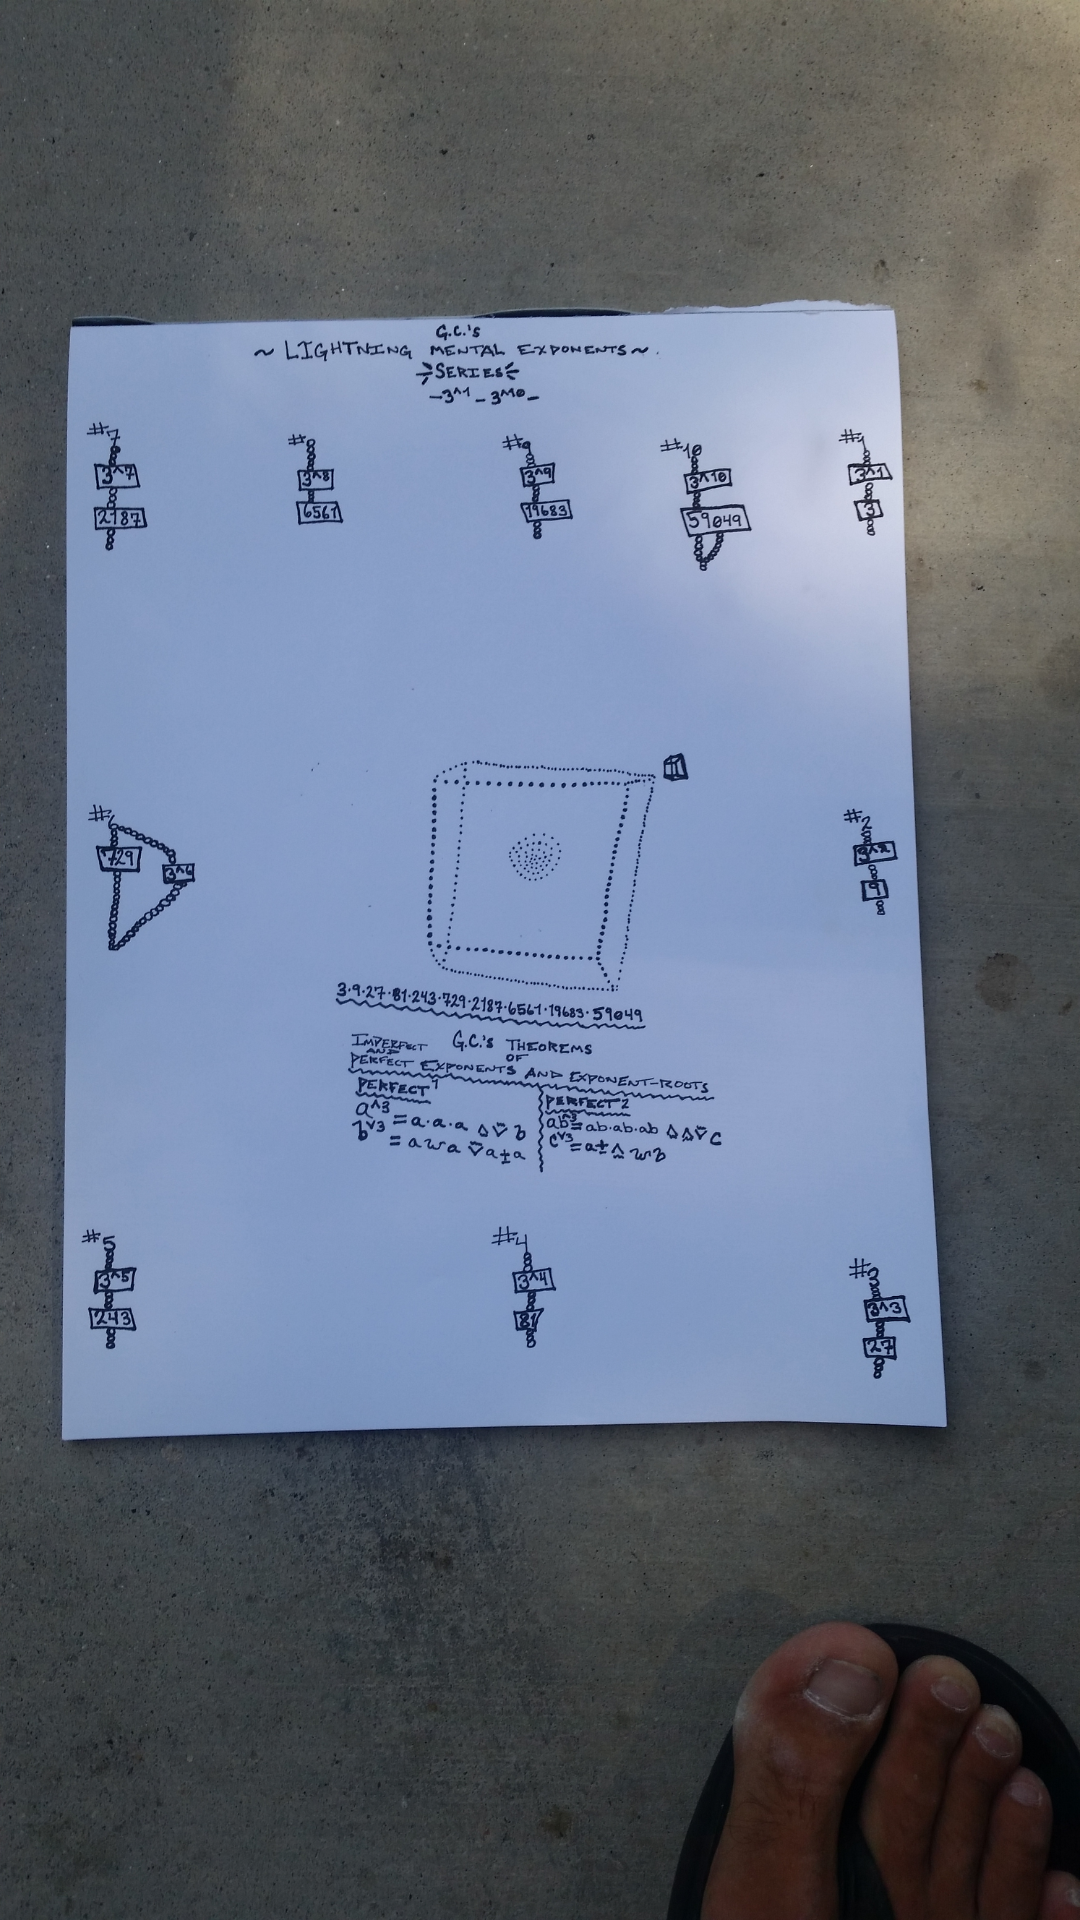 G.C.'s
~ LIGHTNING MENTAL EXPONENTS ~.
SERIES
-3^1 - 3^10-
#7
3^7
2187
#8
3^8
6561
#9
3^9
19683
#10
3^10
59049
#1
3^1
3
#6
729
3^6
#2
3^2
9
3·9·27·81·243·729·2187·6561·19683·59049
G.C.'s THEOREMS
IMPERFECT
AND
OF
PERFECT EXPONENTS AND EXPONENT-ROOTS
PERFECT 1
a^3 = a·a·a
b^v3 = a
PERFECT 2
ab^3 = ab·ab·ab
c^v3 = a±
#5
3^5
243
#4
3^4
81
#3
3^3
27